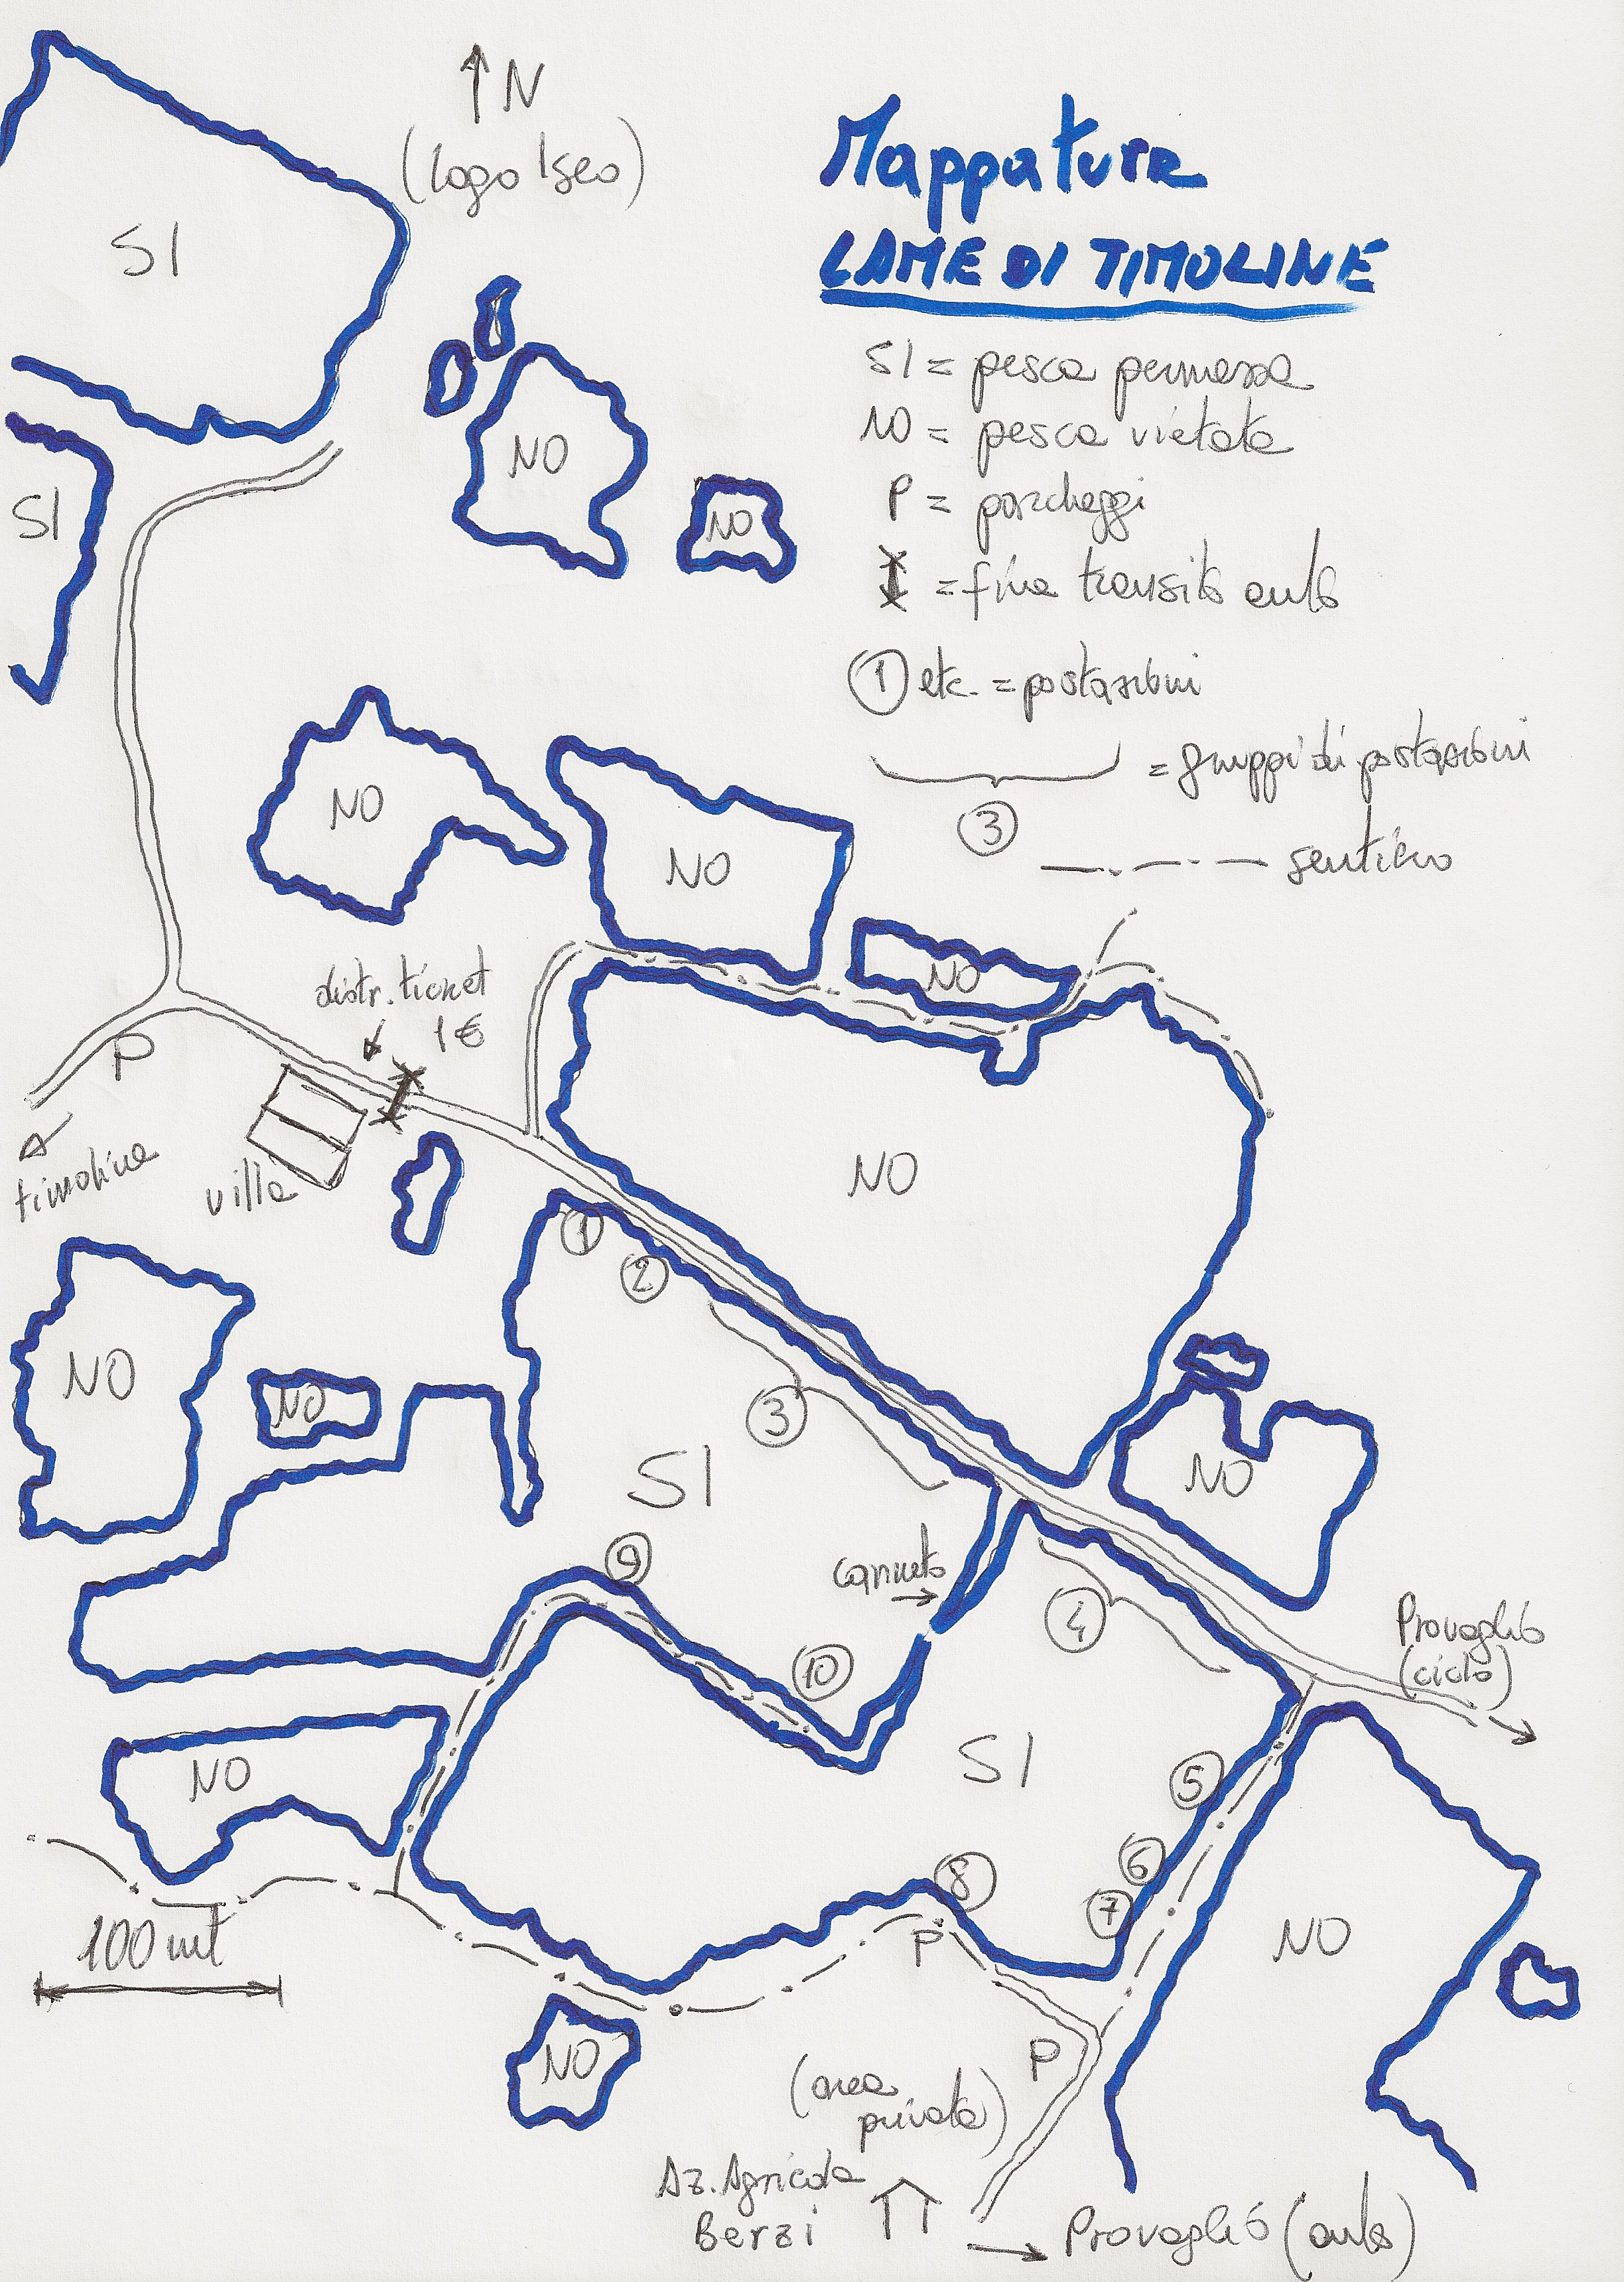 N
(lago Iseo)
Mappatura
LAME DI TIMOLINE
SI = pesca permessa
NO = pesca vietata
P = parcheggi
= fine transito auto
1 etc. = postazioni
= gruppi di postazioni
3
sentiero
SI
SI
NO
NO
NO
NO
NO
distr. ticket
1€
P
timoline
villa
NO
1
2
3
NO
NO
SI
NO
canneto
4
9
10
Provaglio
(ciclo)
NO
SI
5
6
7
8
P
NO
100 mt
NO
P
(area
privata)
Az. Agricola
Berzi
Provaglio (auto)